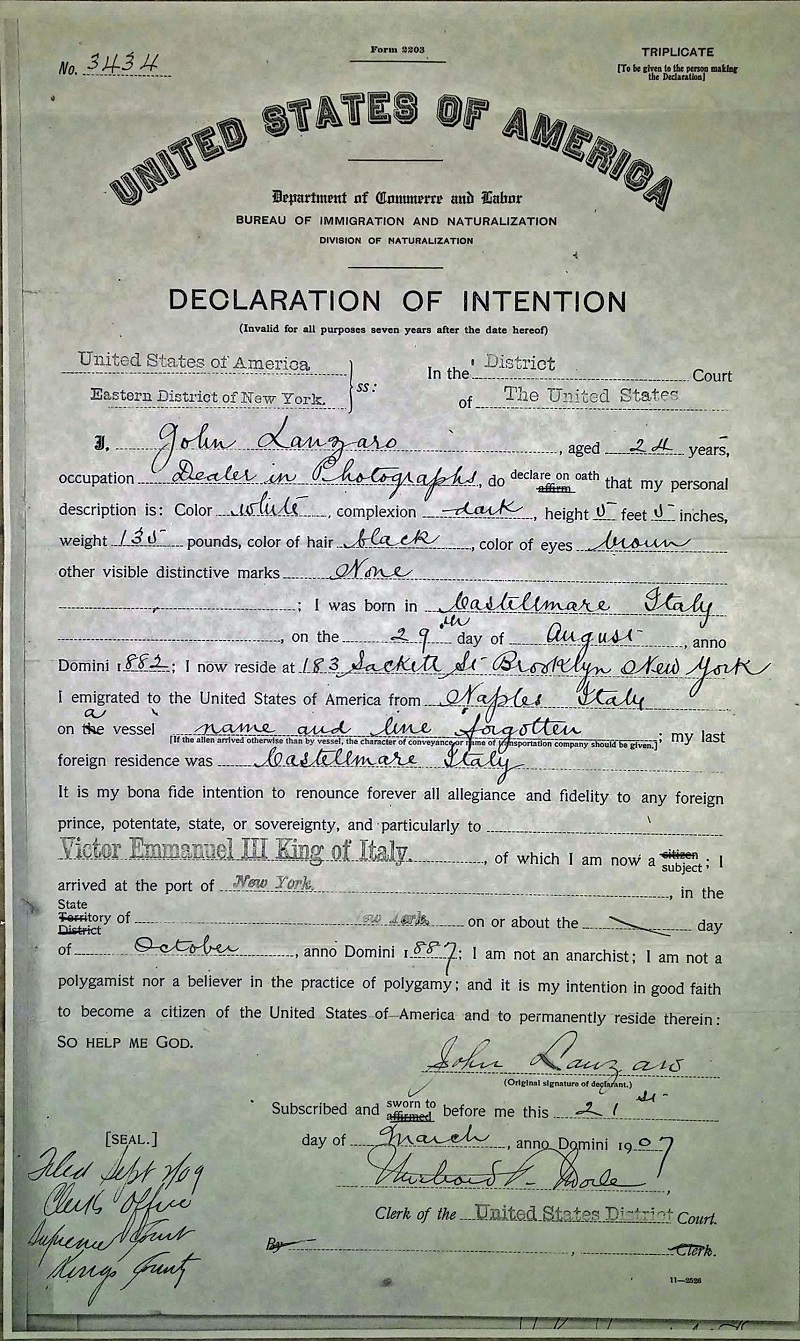 No. 3434
Form 2203
TRIPLICATE
[To be given to the person making
the Declaration]
UNITED STATES OF AMERICA
Department of Commerce and Labor
BUREAU OF IMMIGRATION AND NATURALIZATION
DIVISION OF NATURALIZATION
DECLARATION OF INTENTION
(Invalid for all purposes seven years after the date hereof)
United States of America
Eastern District of New York.
ss:
In the District Court
of The United States
I, John Lanzaro, aged 24 years,
occupation Dealer in Photographs, do declare on oath affirm that my personal
description is: Color white, complexion dark, height 5 feet 5 inches,
weight 135 pounds, color of hair black, color of eyes brown
other visible distinctive marks None
; I was born in Castellmare Italy
, on the 29th day of August, anno
Domini 1882; I now reside at 183 Sackett St Brooklyn New York
I emigrated to the United States of America from Naples Italy
on the a vessel name and line forgotten
[If the alien arrived otherwise than by vessel, the character of conveyance or name of transportation company should be given.]; my last
foreign residence was Castellmare Italy
It is my bona fide intention to renounce forever all allegiance and fidelity to any foreign
prince, potentate, state, or sovereignty, and particularly to
Victor Emmanuel III King of Italy., of which I am now a citizen subject; I
arrived at the port of New York, in the
State Territory District of New York on or about the day
of October, anno Domini 1887; I am not an anarchist; I am not a
polygamist nor a believer in the practice of polygamy; and it is my intention in good faith
to become a citizen of the United States of America and to permanently reside therein:
SO HELP ME GOD.
John Lanzaro
(Original signature of declarant.)
Subscribed and sworn to affirmed before me this 21st
[SEAL.]
day of March, anno Domini 1907
Clerk of the United States District Court.
By , Clerk.
Filed Sept 7/09
Clerks Office
Supreme Court
Kings County
11—2526